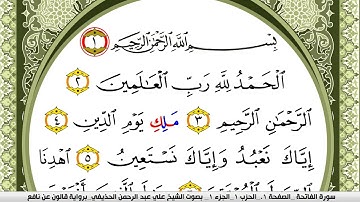 بِسْمِ ٱللَّهِ ٱلرَّحْمَٰنِ ٱلرَّحِيمِ ١
ٱلْحَمْدُ لِلَّهِ رَبِّ ٱلْعَٰلَمِينَ ٢
ٱلرَّحْمَٰنِ ٱلرَّحِيمِ ٣ مَلِكِ يَوْمِ ٱلدِّينِ ٤
إِيَّاكَ نَعْبُدُ وَإِيَّاكَ نَسْتَعِينُ ٥ ٱهْدِنَا
سورة الفاتحة _ الصفحة ١ _ الحزب ١ _ الجزء ١ _ بصوت الشيخ علي عبد الرحمن الحذيفي _ برواية قالون عن نافع